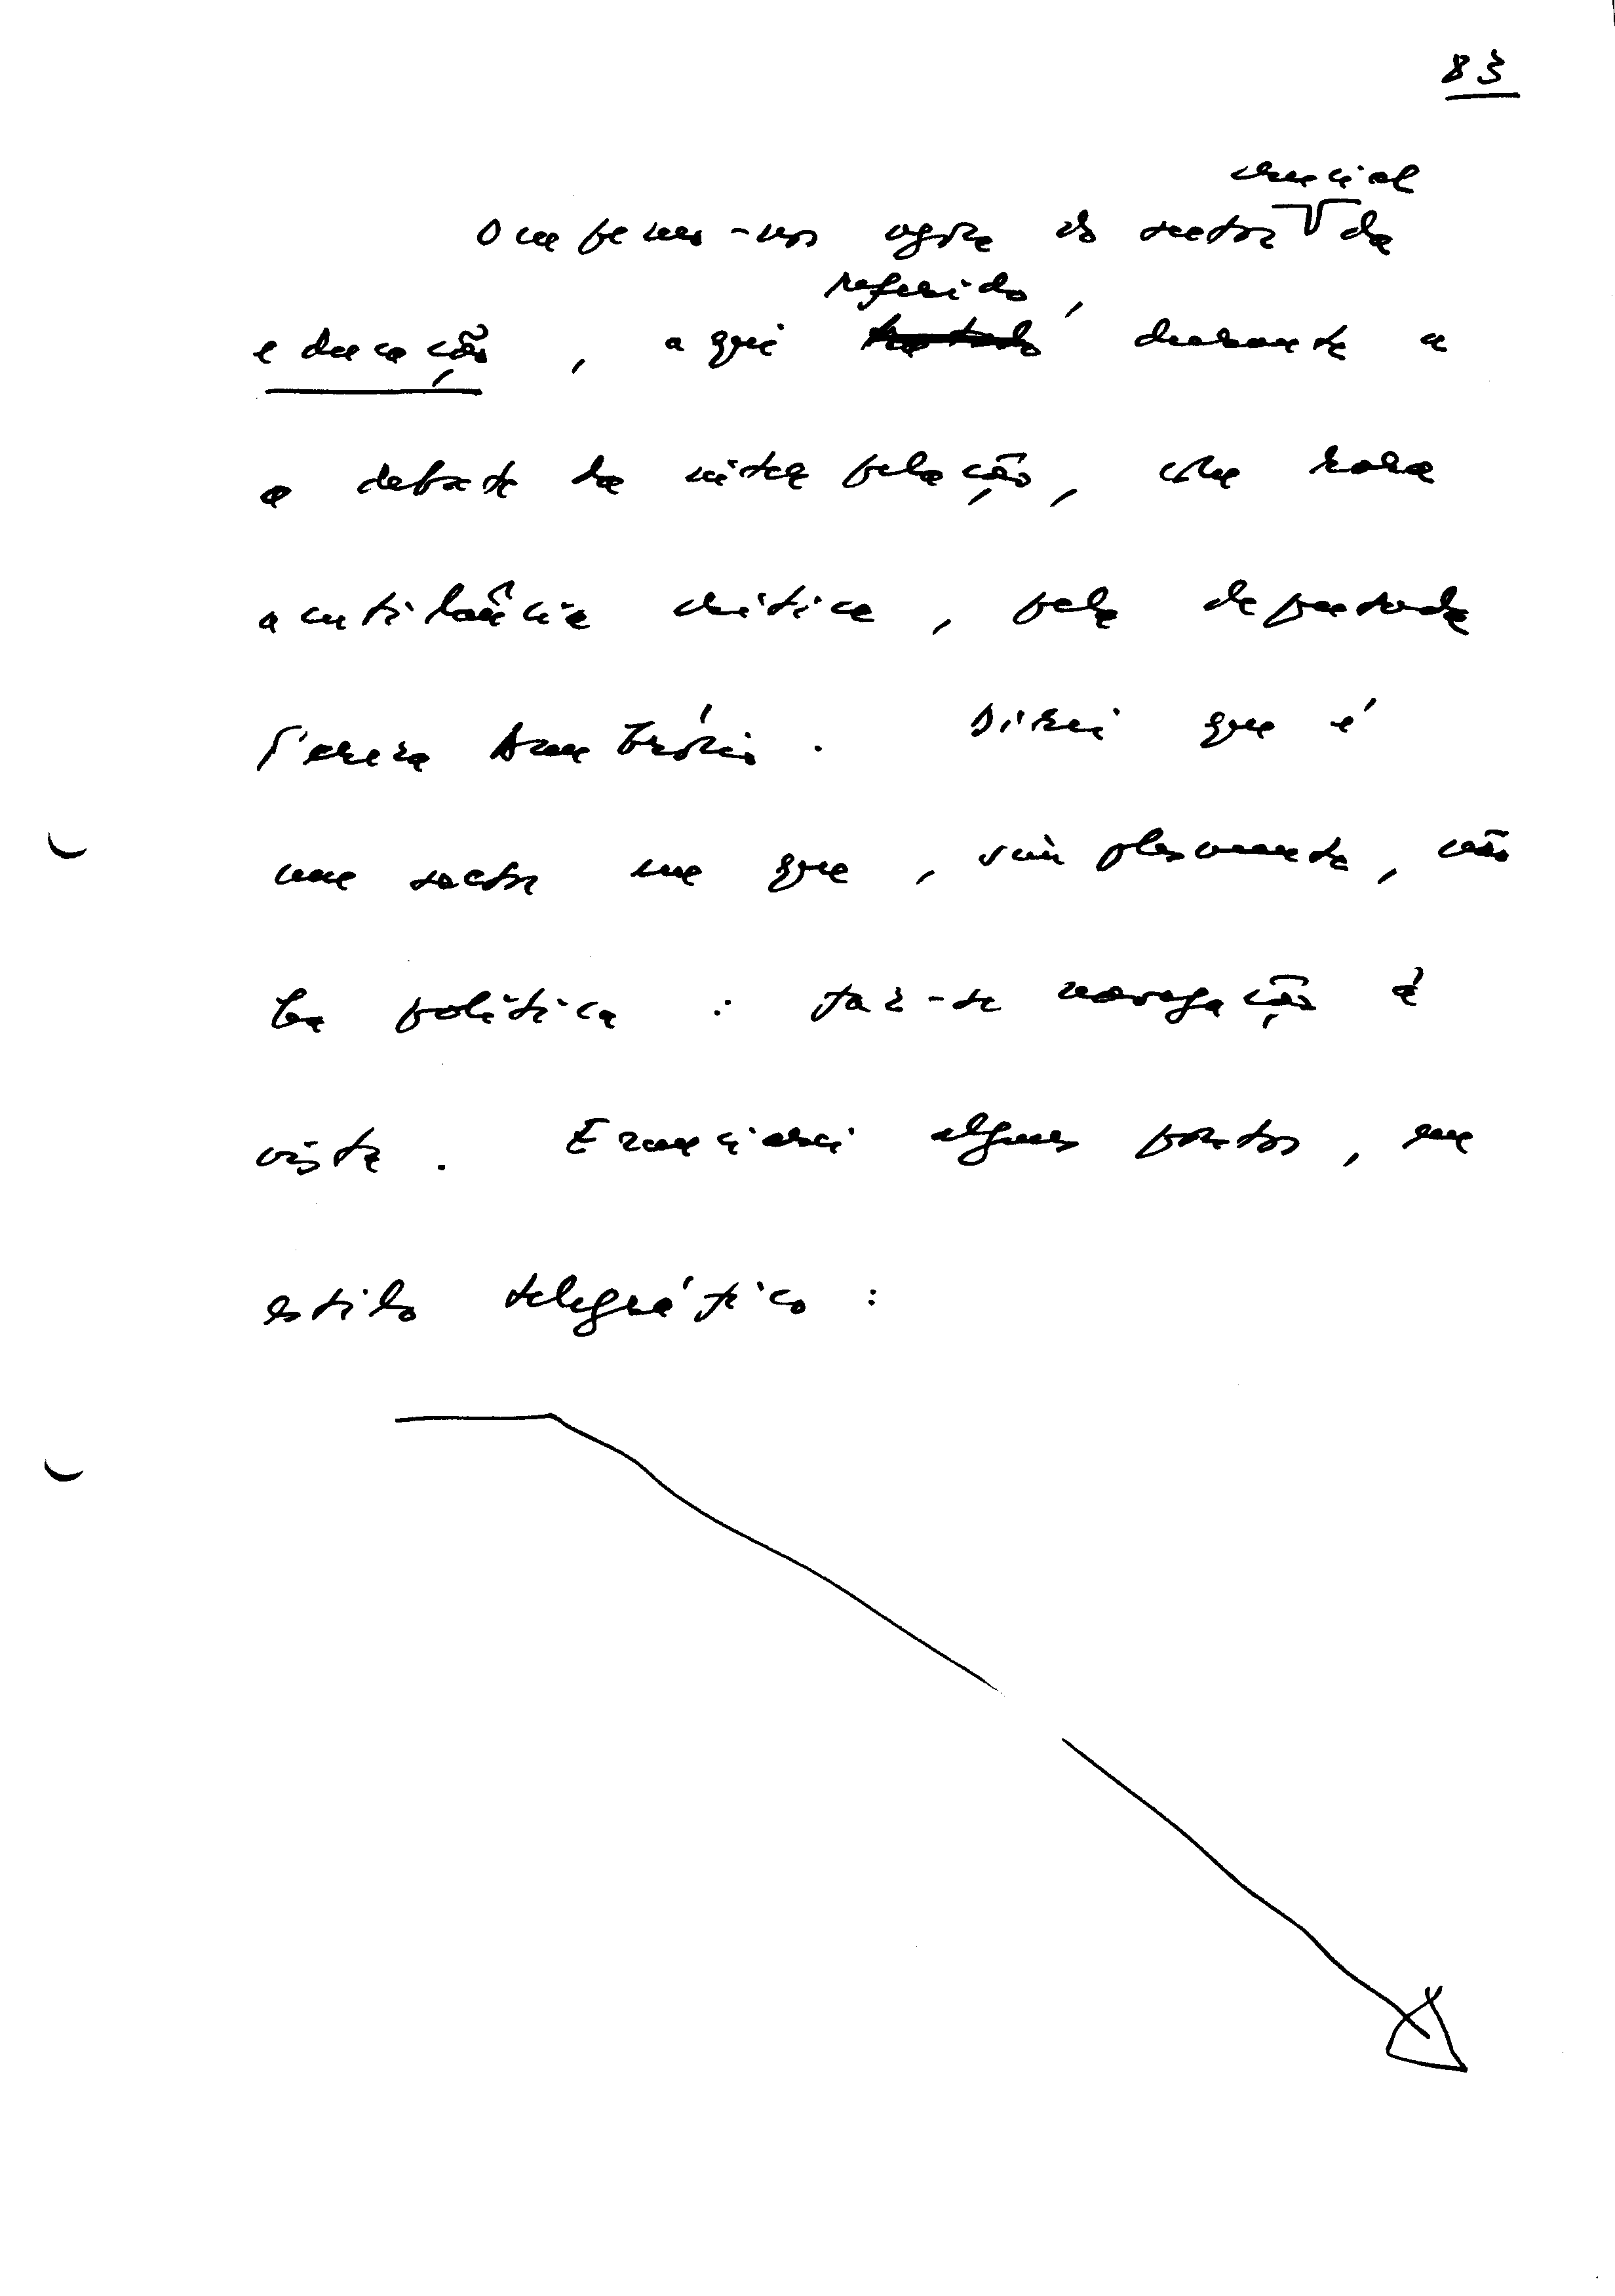 83
crucial
Ocupemo-nos agora do sector da
referido,
educação, aqui tratado durante a
o debate da interpelação, com rara
acutilância crítica, pela deputada
Teresa Ambrósio. Direi que é
um sector em que, simplesmente, não
há política: faz-se navegação à
vista. Enunciarei alguns pontos, em
estilo telegráfico: